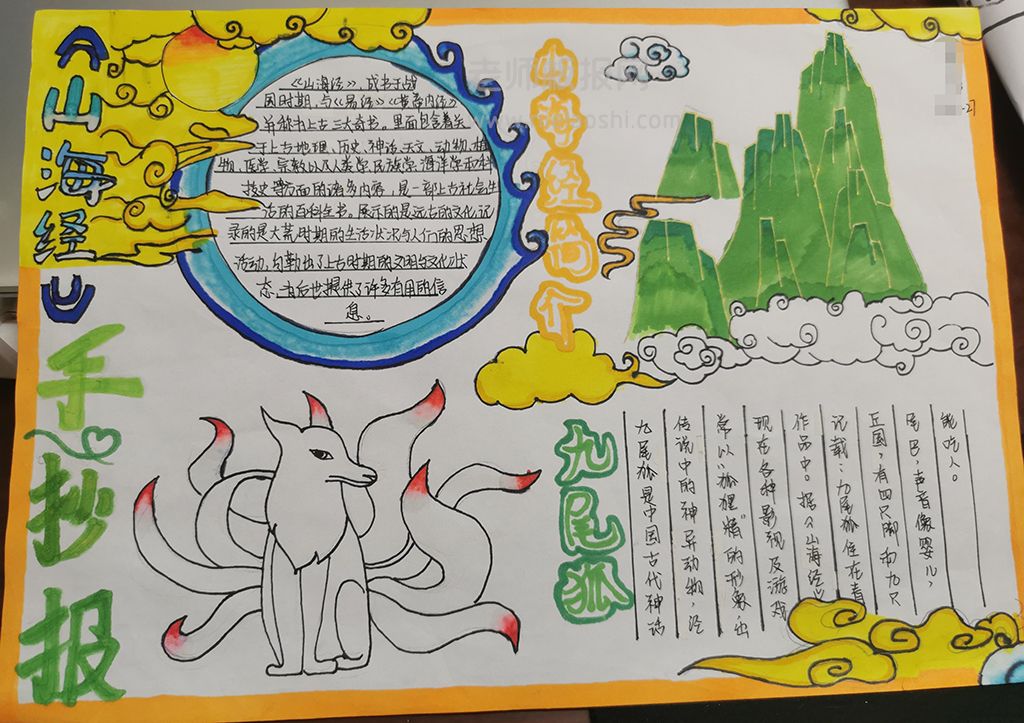 《山海经》
手抄报
《山海经》,成书于战
国时期,与《易经》《黄帝内经》
并称为上古三大奇书。里面包含着关
于上古地理、历史、神话、天文、动物、植
物、医学、宗教以及人类学、民族学、海洋学和科
技史等方面的诸多内容,是一部上古社会生
活的百科全书。展示的是远古的文化,记
录的是大荒时期的生活状况与人们的思想
活动,勾勒出了上古时期的文明与文化状
态,为后世提供了许多有用的信
息。
山海经简介
九尾狐
九尾狐是中国古代神话
传说中的神异动物,经
常以“狐狸精”的形象出
现在各种影视及游戏
作品中。据《山海经》
记载:九尾狐住在青
丘国,有四只脚和九只
尾巴,声音像婴儿,
能吃人。